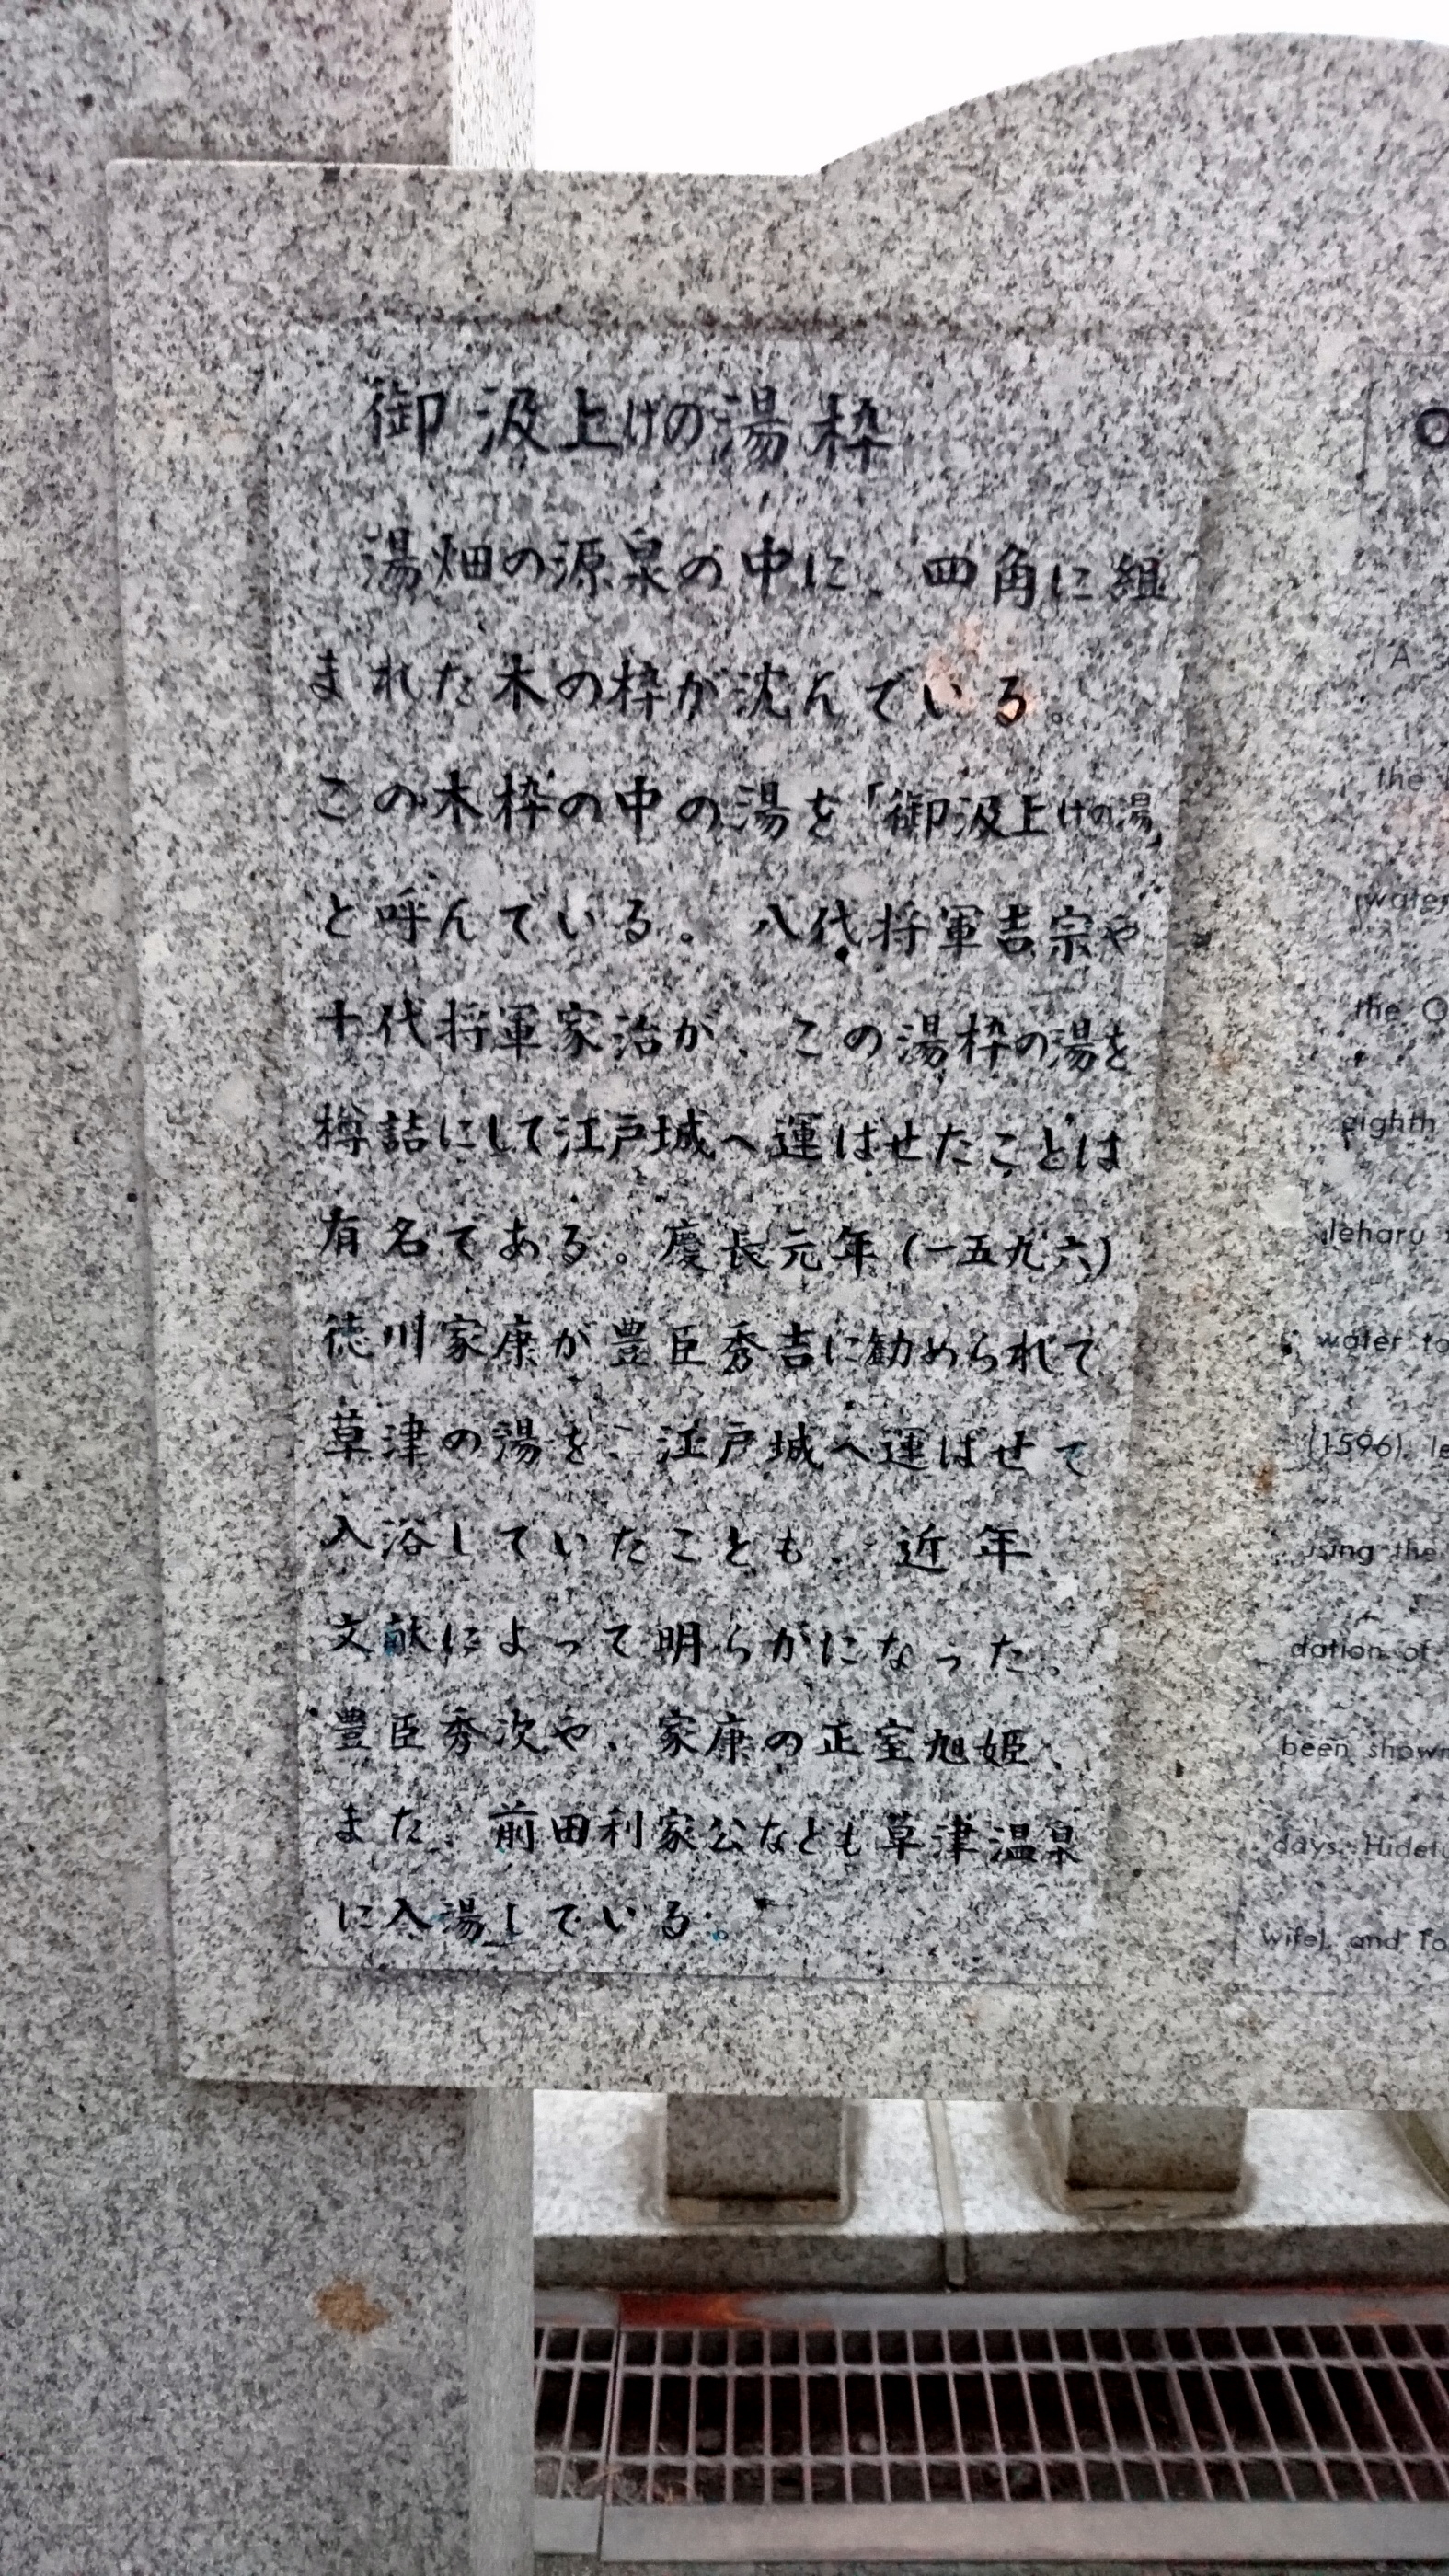 御汲上げの湯枠
湯畑の源泉の中に、四角に組
まれた木の枠が沈んでいる。
この木枠の中の湯を「御汲上げの湯」
と呼んでいる。八代将軍吉宗や
十代将軍家治が、この湯枠の湯を
樽詰にして江戸城へ運ばせたことは
有名である。慶長元年(一五九六)
徳川家康が豊臣秀吉に勧められて
草津の湯を、江戸城へ運ばせて
入浴していたことも、近年
文献によって明らかになった。
豊臣秀次や、家康の正室旭姫、
また、前田利家公なども草津温泉
に入湯している。
O
A
the
water
the O
eighth
Ieharu
water to
(1596), Ie
using the
dation of
been shown
days. Hidet
wife), and To